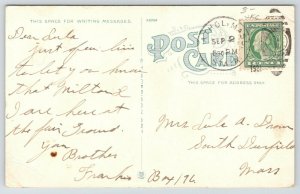 THIS SPACE FOR WRITING MESSAGES.
POST CARD
THIS SPACE FOR ADDRESS ONLY.
SEP 2
Dear Lula
Just a line
to let you know
that Milton &
I are here at
the fair Ground.
Your
Brother
Frank
Mrs Lula A. Brown
South Deerfield
Box 196 Mass